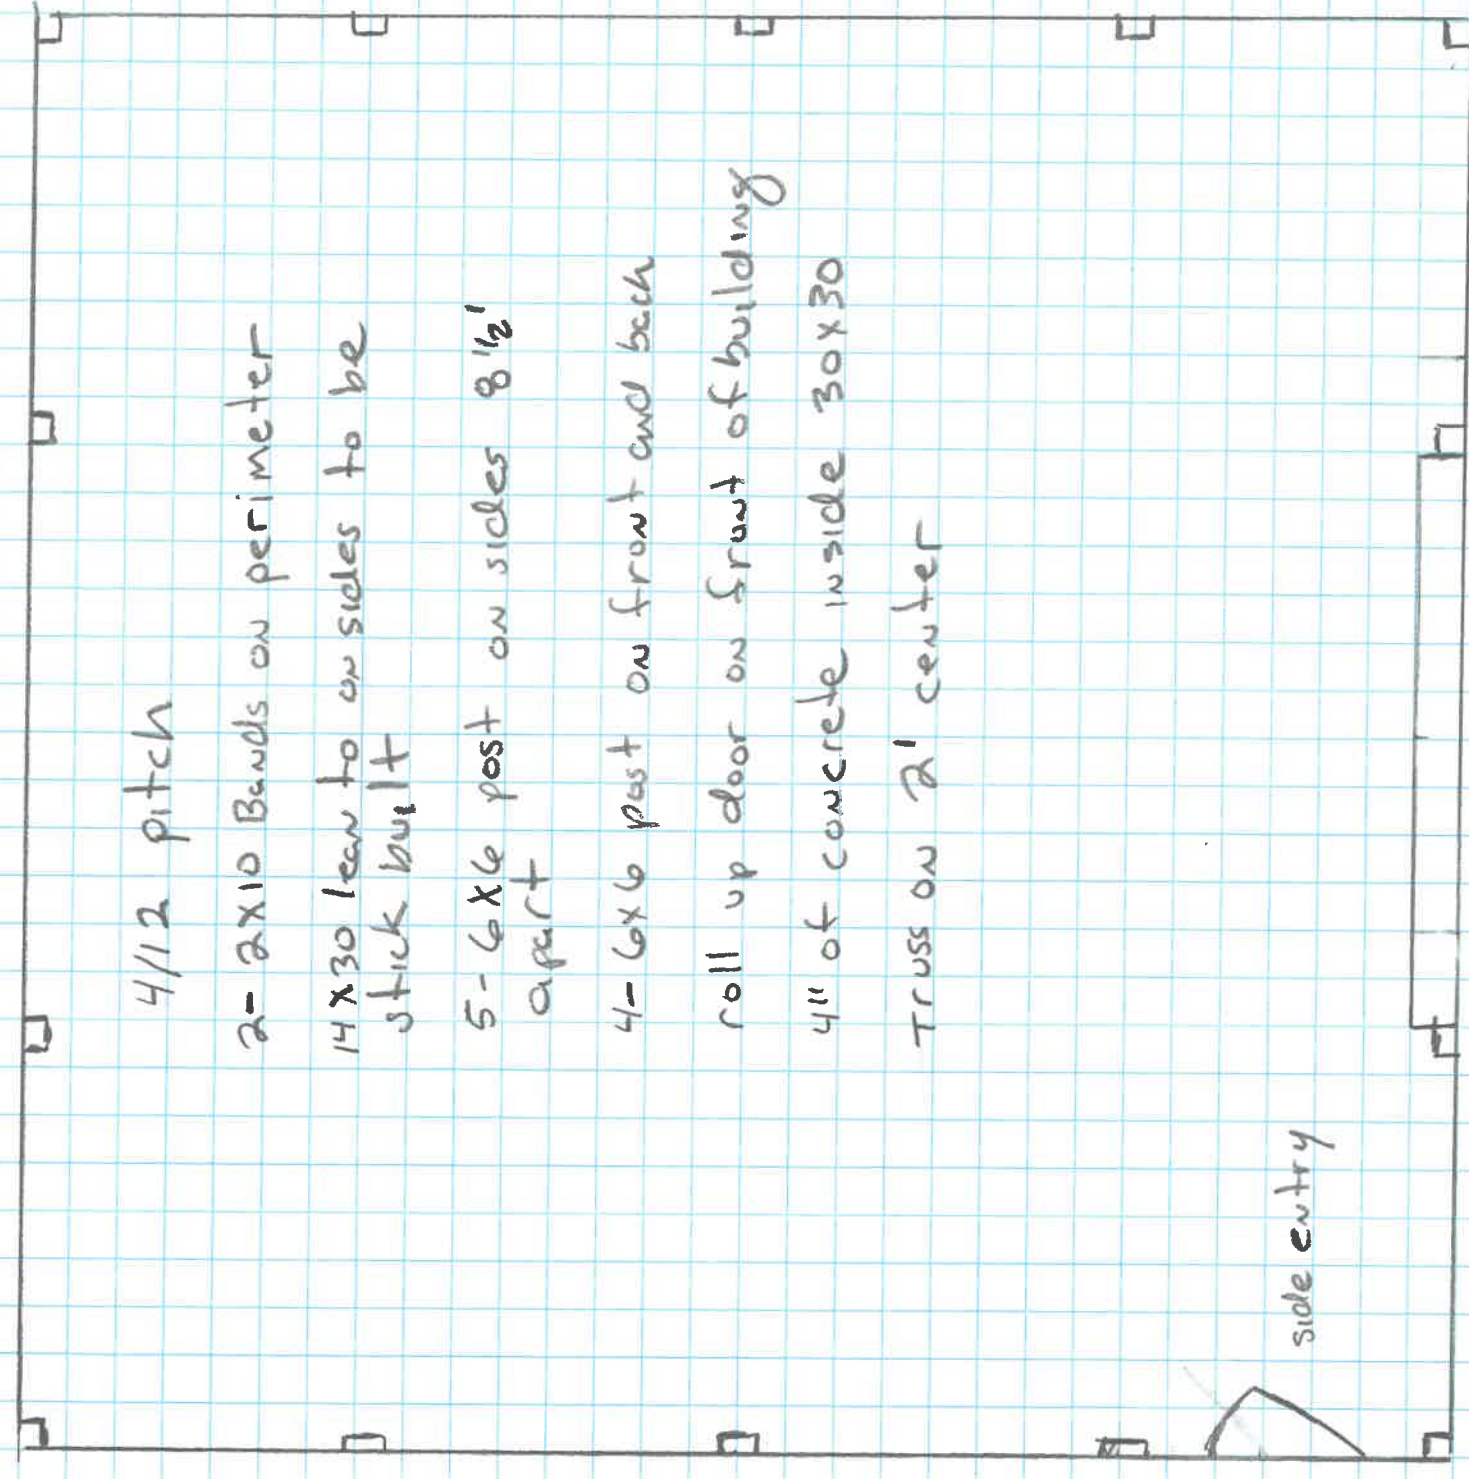 4/12 pitch
2-2x10 Bands on perimeter
14x30 lean to on sides to be
stick built
5-6x6 post on sides 8 1/2'
apart
4-6x6 post on front and back
roll up door on front of building
4" of concrete inside 30x30
Truss on 2' center
side entry